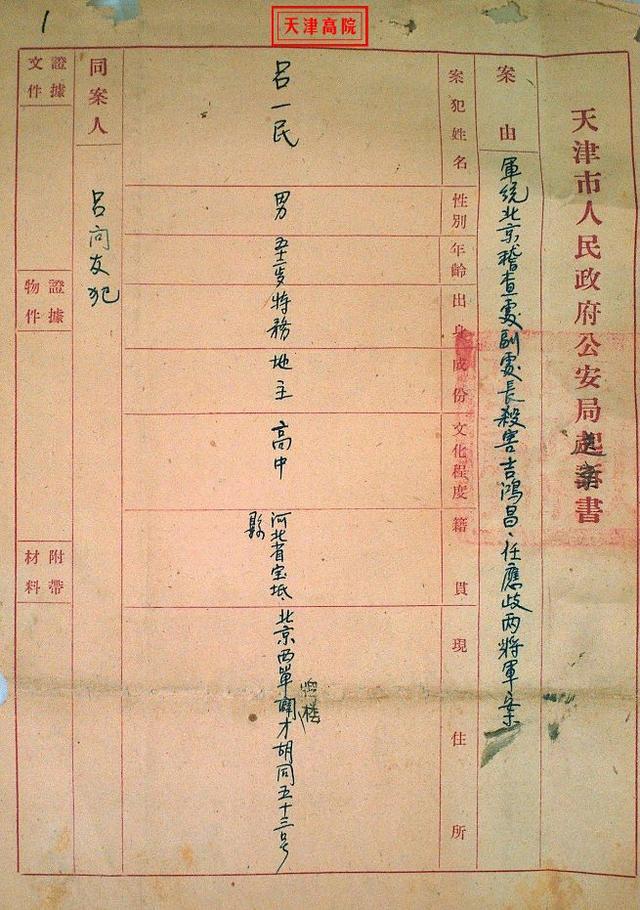 1
天津高院
天津市人民政府公安局書
案由
軍統北京稽查處副處長殺害吉鴻昌、任應歧兩將軍案
案犯姓名
性別
年齡
出身
成份
文化程度
籍貫
現住所
呂一民
男
特務
地主
高中
河北省宝坻縣
北京西單牌楼闢才胡同五十三号
同案人
呂向友犯
證據文件
證據物件
附帶材料